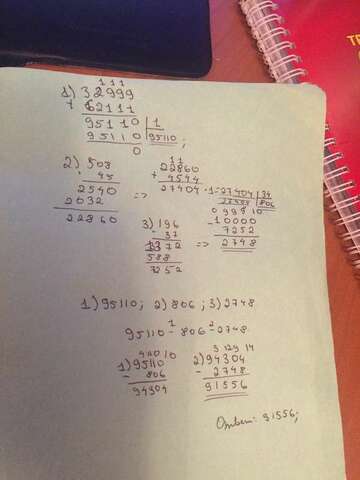 1 1 1
1) 32999
+ 62111
95110 | 1
95110 | 95110 ;
0
2) 508
45
2540 =>
2032
22860
1 1
22860
+ 4544
27404
27404 | 34
27404 | 806
0
9 9 9 10
- 10000
7252
2748
3) 196
37
1372 =>
588
7252
1) 95110; 2) 806; 3) 2748
95110 -¹ 806 -² 2748
1) 95110
- 806
94304
3 12 9 14
2) 94304
- 2748
91556
Ответ: 91556;